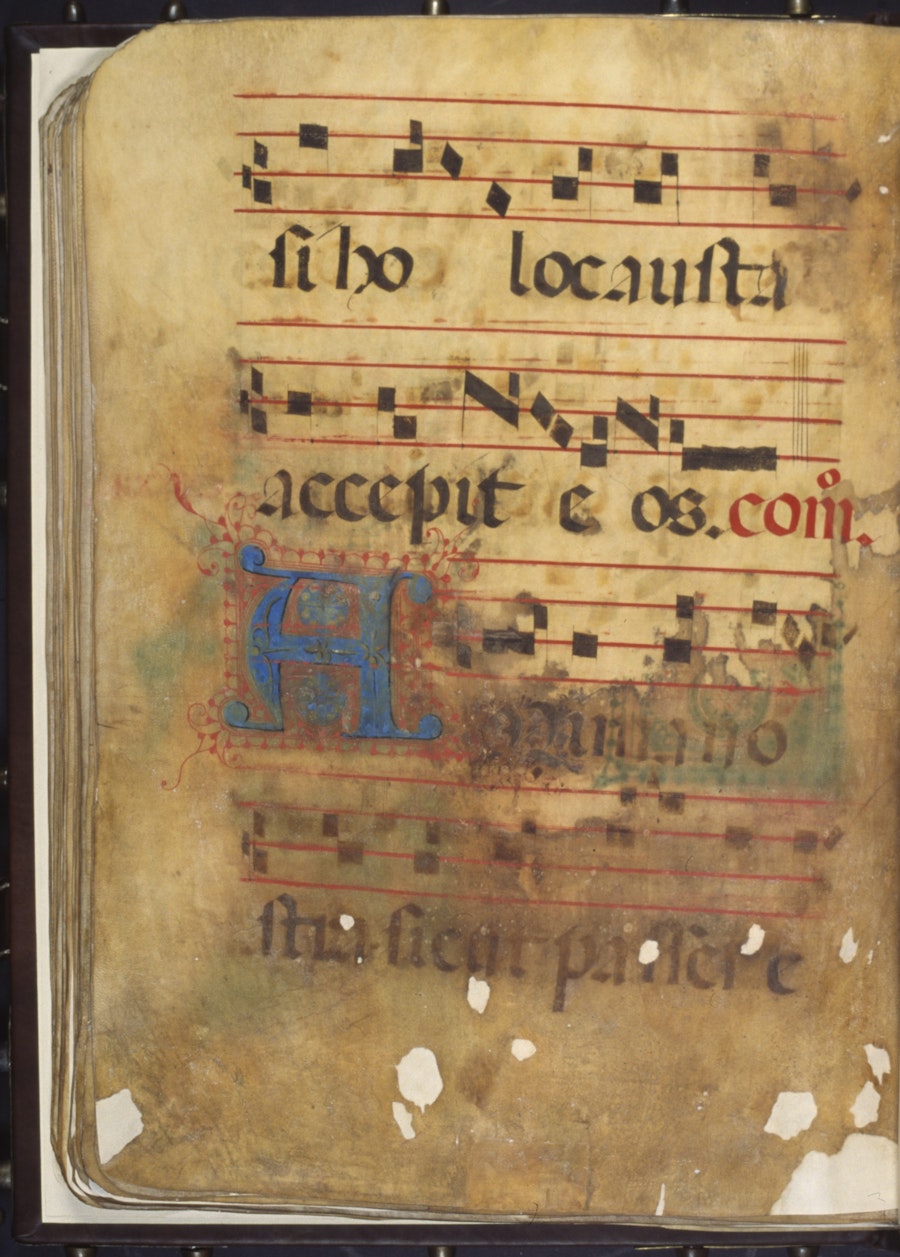 si ho locausta
accepit e os. com̄.
Anima no
stra sicut passer e